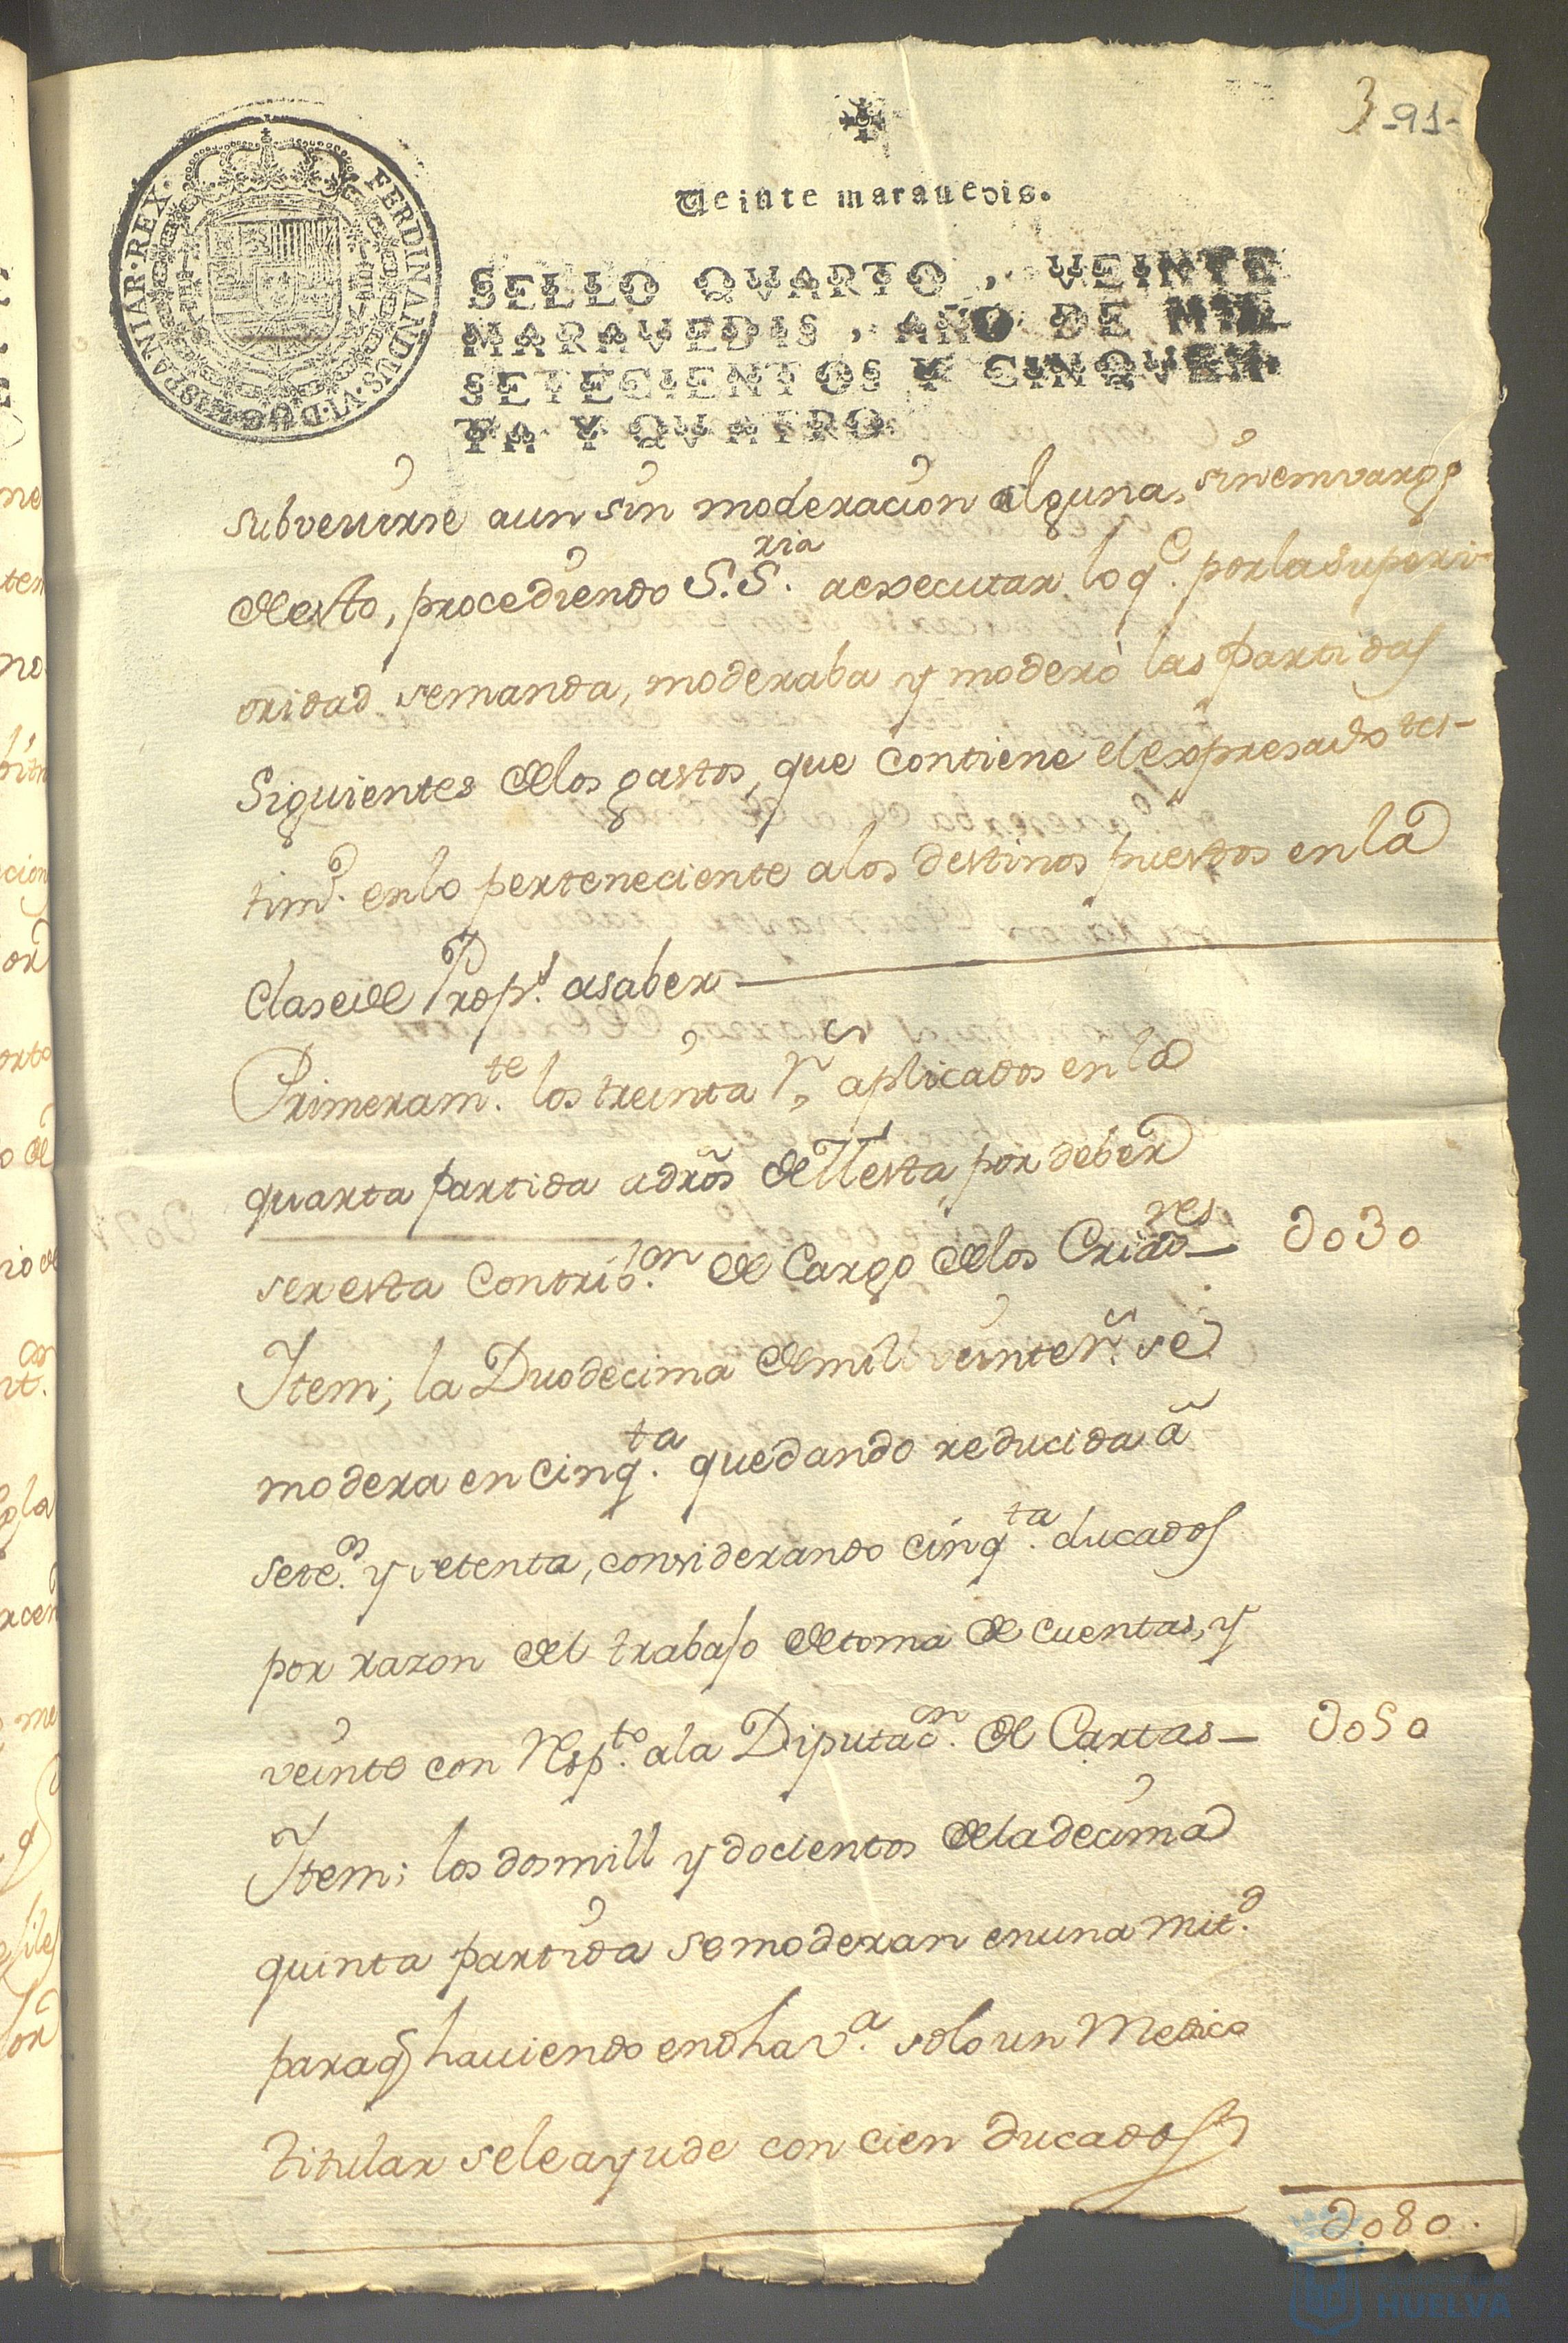 3 -91-
Veinte maravedis.
HISPANIAR·REX· FERDINANDUS·VI·D·G·
SELLO QVARTO, VEINTE
MARAVEDIS, AÑO DE MIL
SETECIENTOS Y CINQVEN
TA Y QVATRO
subvenirse aun sin moderacion alguna, sin emvargo
de esto, procediendo S.Sria. aexecutar lo qe. por la superi-
oridad se manda, moderaba y moderò las partidas
Siguientes de los gastos, que contiene el expresado tes-
timo. en lo perteneciente a los destinos puestos en la
Clase de Props. asaber
Primeramte. los treinta rs aplicados en la
quarta partida a dros de Mesta por deber
ser esta contribon. de Cargo de los Criadores — Do30
Item; la Duodecima de mill veinte rs. se
modera en cinqta. quedando reducida â
setes. y setenta, considerando cinqta. ducados
por razon del trabajo de toma de cuentas, y
veinte con respto. a la Diputacn. de Cartas — Do50
Item; los dos mill y docientos de la decima
quinta partida se moderan en una mitd.
para q haviendo en dha va. solo un Medico
titular se le ayude con cien ducados
Do80.
HUELVA